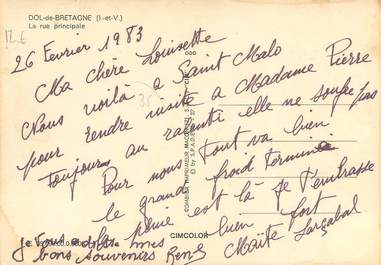 DOL-de-BRETAGNE (I.-et-V.)
La rue principale
26 Fevrier 1983
Ma chère Louisette
Nous voilà à Saint Malo
pour rendre visite à Madame Pierre
toujours au ralenti elle ne souffre pas
Pour nous tout va bien
le grand froid terminé
la pluie est là Je t'embrasse
bien fort
Maïte
je vous adresse mes
bons souvenirs René
CIMCOLOR